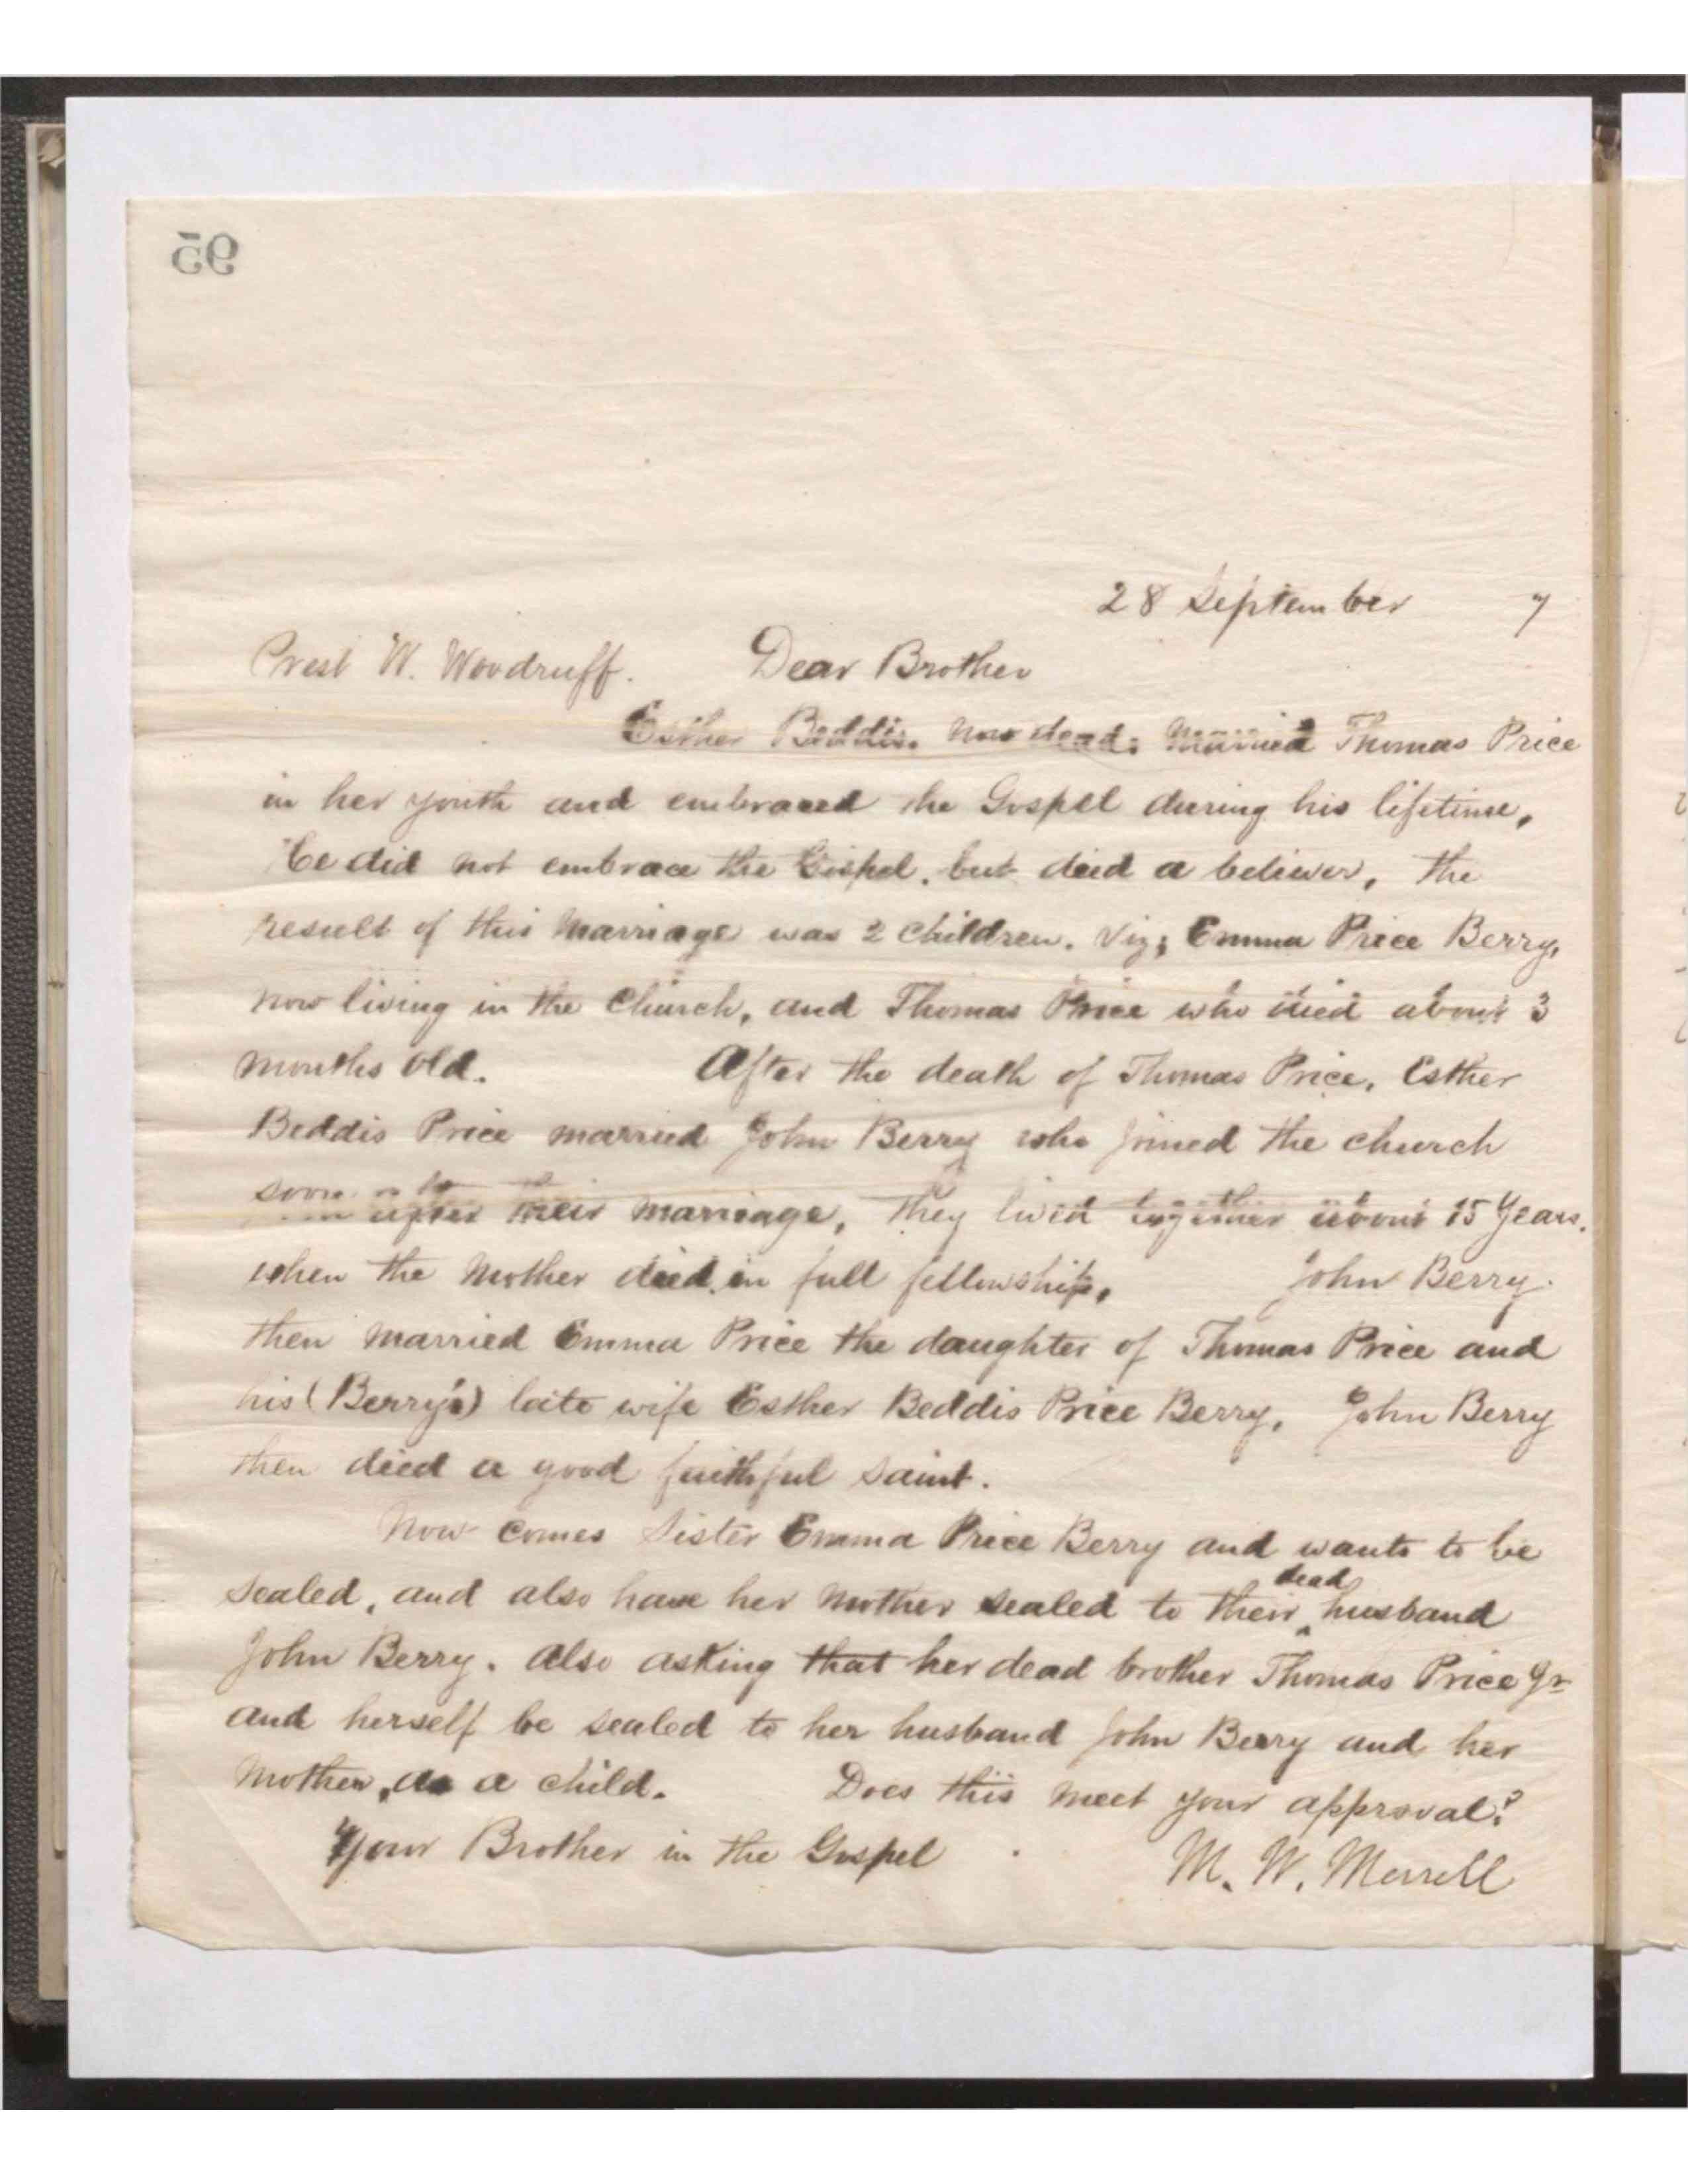 95
28 September 7
Prest W. Woodruff. Dear Brother
Esther Beddis. now dead. Married Thomas Price
in her youth and embraced the Gospel during his lifetime,
He did not embrace the Gospel. but died a believer, the
result of this Marriage was 2 Children. Viz; Emma Price Berry,
now living in the Church, and Thomas Price who died about 3
months old. After the death of Thomas Price, Esther
Beddis Price married John Berry who joined the church
soon after their marriage, They lived together about 15 Years.
when the Mother died in full fellowship, John Berry.
then married Emma Price the daughter of Thomas Price and
his (Berry's) late wife Esther Beddis Price Berry, John Berry
then died a good faithful Saint.
Now comes Sister Emma Price Berry and wants to be
sealed, and also have her Mother sealed to their dead husband
John Berry. also asking that her dead brother Thomas Price Jr
and herself be sealed to her husband John Berry and her
Mother, as a child. Does this meet your approval?
Your Brother in the Gospel M. W. Merrell